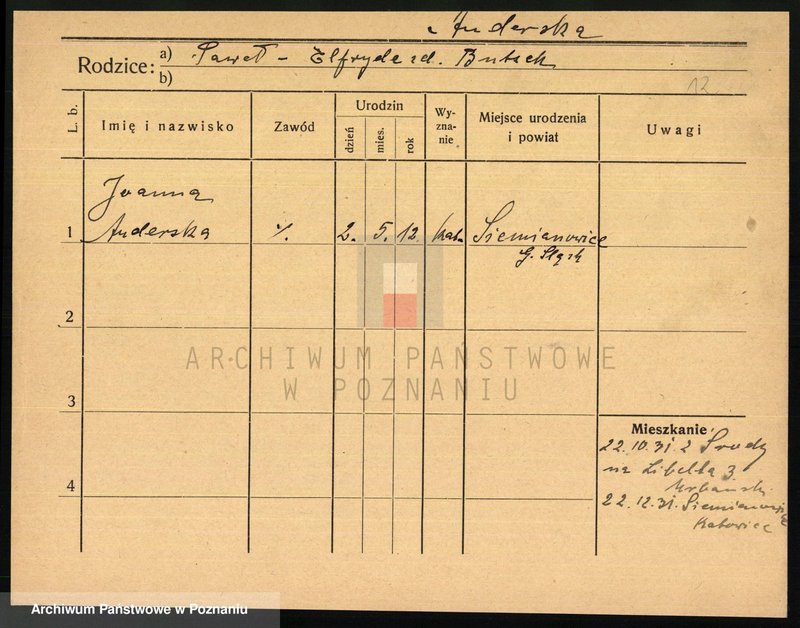 Anderska
Rodzice: a) Paweł – Elfryda zd. Butsek
b)
12
L. b.
Imię i nazwisko
Zawód
Urodzin
dzień
mies.
rok
Wy-
zna-
nie
Miejsce urodzenia
i powiat
Uwagi
Joanna
1 Anderska ./. 2. 5. 12. kat. Siemianowice
G. Śląsk
2
ARCHIWUM PAŃSTWOWE
W POZNANIU
3
Mieszkanie
22.10.31. z Środy
na Libelta 3
Urbański
4
22.12.31. Siemianowice
Katowice
Archiwum Państwowe w Poznaniu